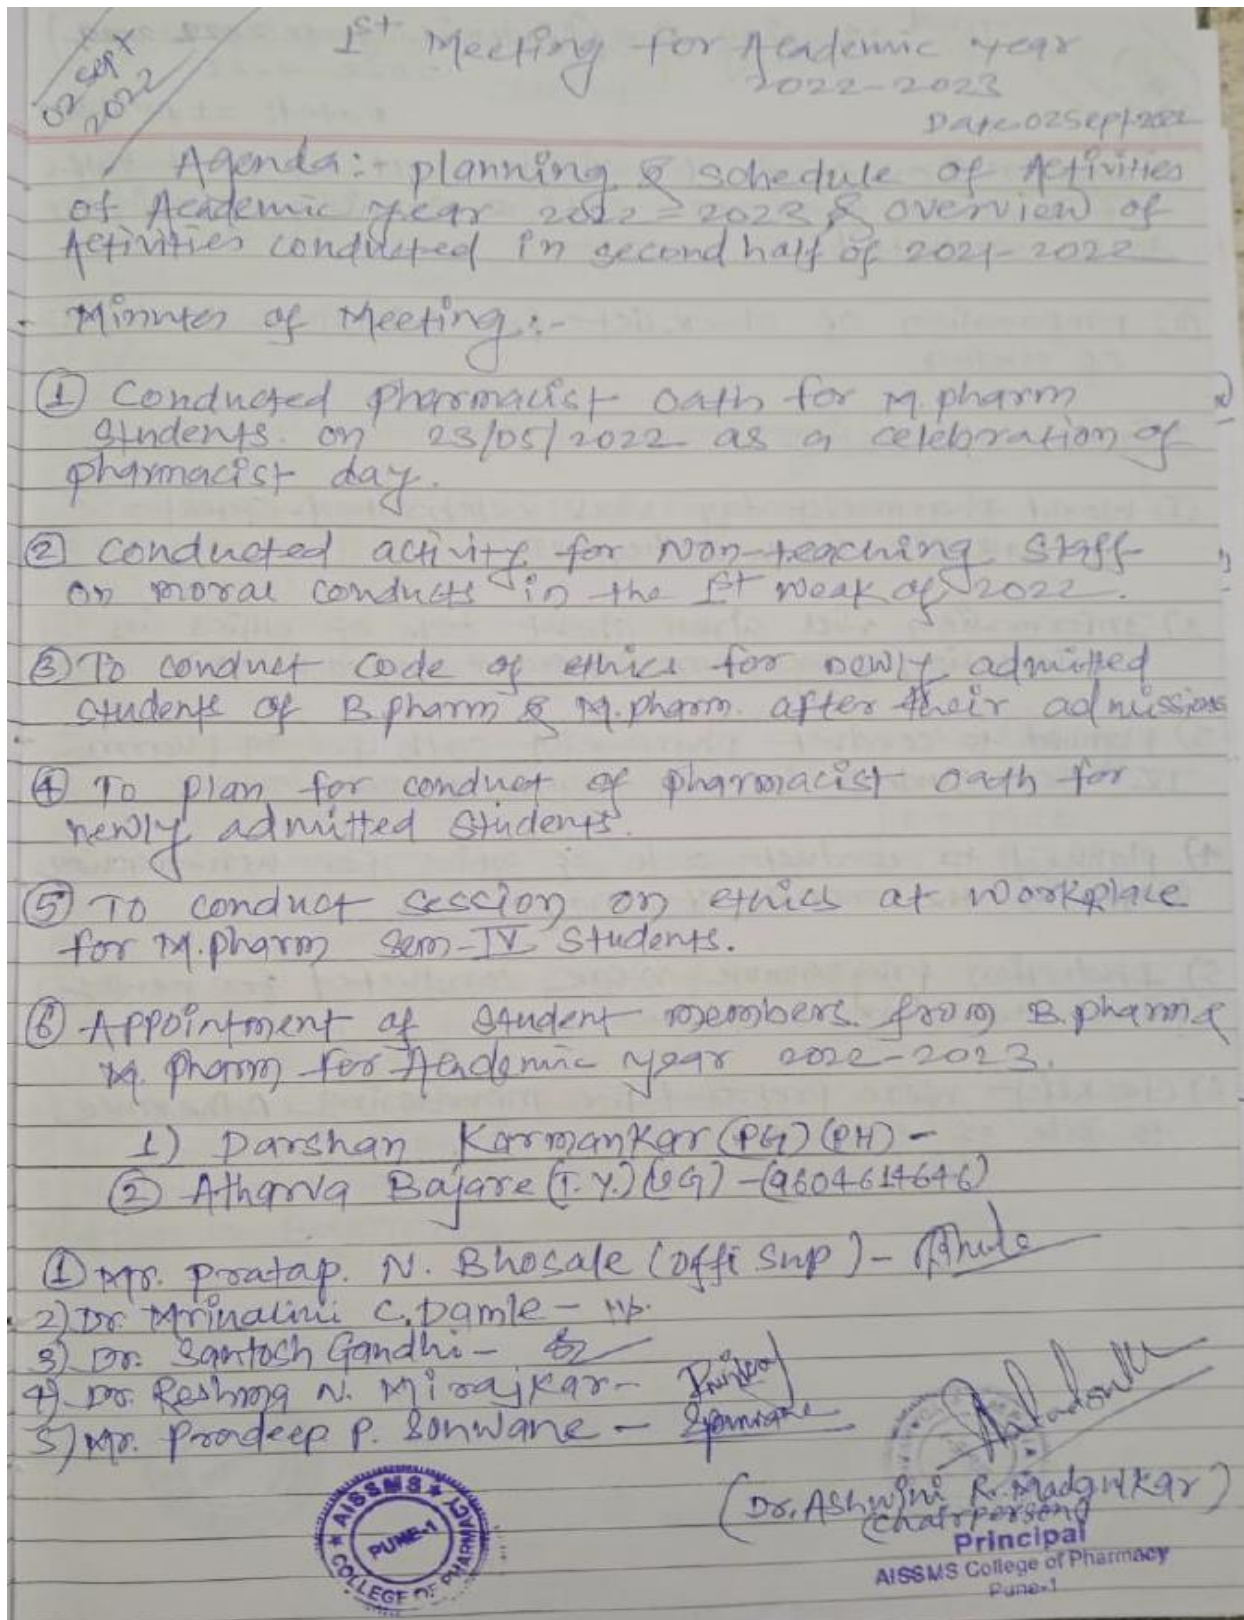 02 Sept
2022
1st Meeting for Academic year
2022-2023
Date 02 Sept 2022
Agenda:- planning & schedule of Activities
of Academic year 2022-2023 & overview of
Activities conducted in second half of 2021-2022
Minutes of Meeting:-
① Conducted pharmacist oath for M.pharm
students. on 23/05/2022 as a celebration of
pharmacist day.
② Conducted activity for Non-teaching staff
on moral conducts in the 1st weak of 2022.
③ To conduct code of ethics for newly admitted
students of B.pharm & M.pharm. after their admissions
④ To plan for conduct of pharmacist oath for
newly admitted students.
⑤ To conduct session on ethics at workplace
for M.pharm sem-IV students.
⑥ Appointment of student members from B.pharm &
M. pharm for Academic year 2022-2023.
1) Darshan Karmankar (PG) (PH) -
② Atharva Bajare (T.Y.) (UG) - (9604614646)
① Mr. Pratap. N. Bhosale (offi sup) -
2) Dr. Mrinalini C. Damle -
3) Dr. Santosh Gandhi -
4) Dr. Reshma N. Mirajkar -
5) Mr. Pradeep P. Sonwane -
(Dr. Ashwini R. Madgulkar)
(Chairperson)
Principal
AISSMS College of Pharmacy
Pune-1
AISSMS
COLLEGE OF PHARMACY
PUNE-1